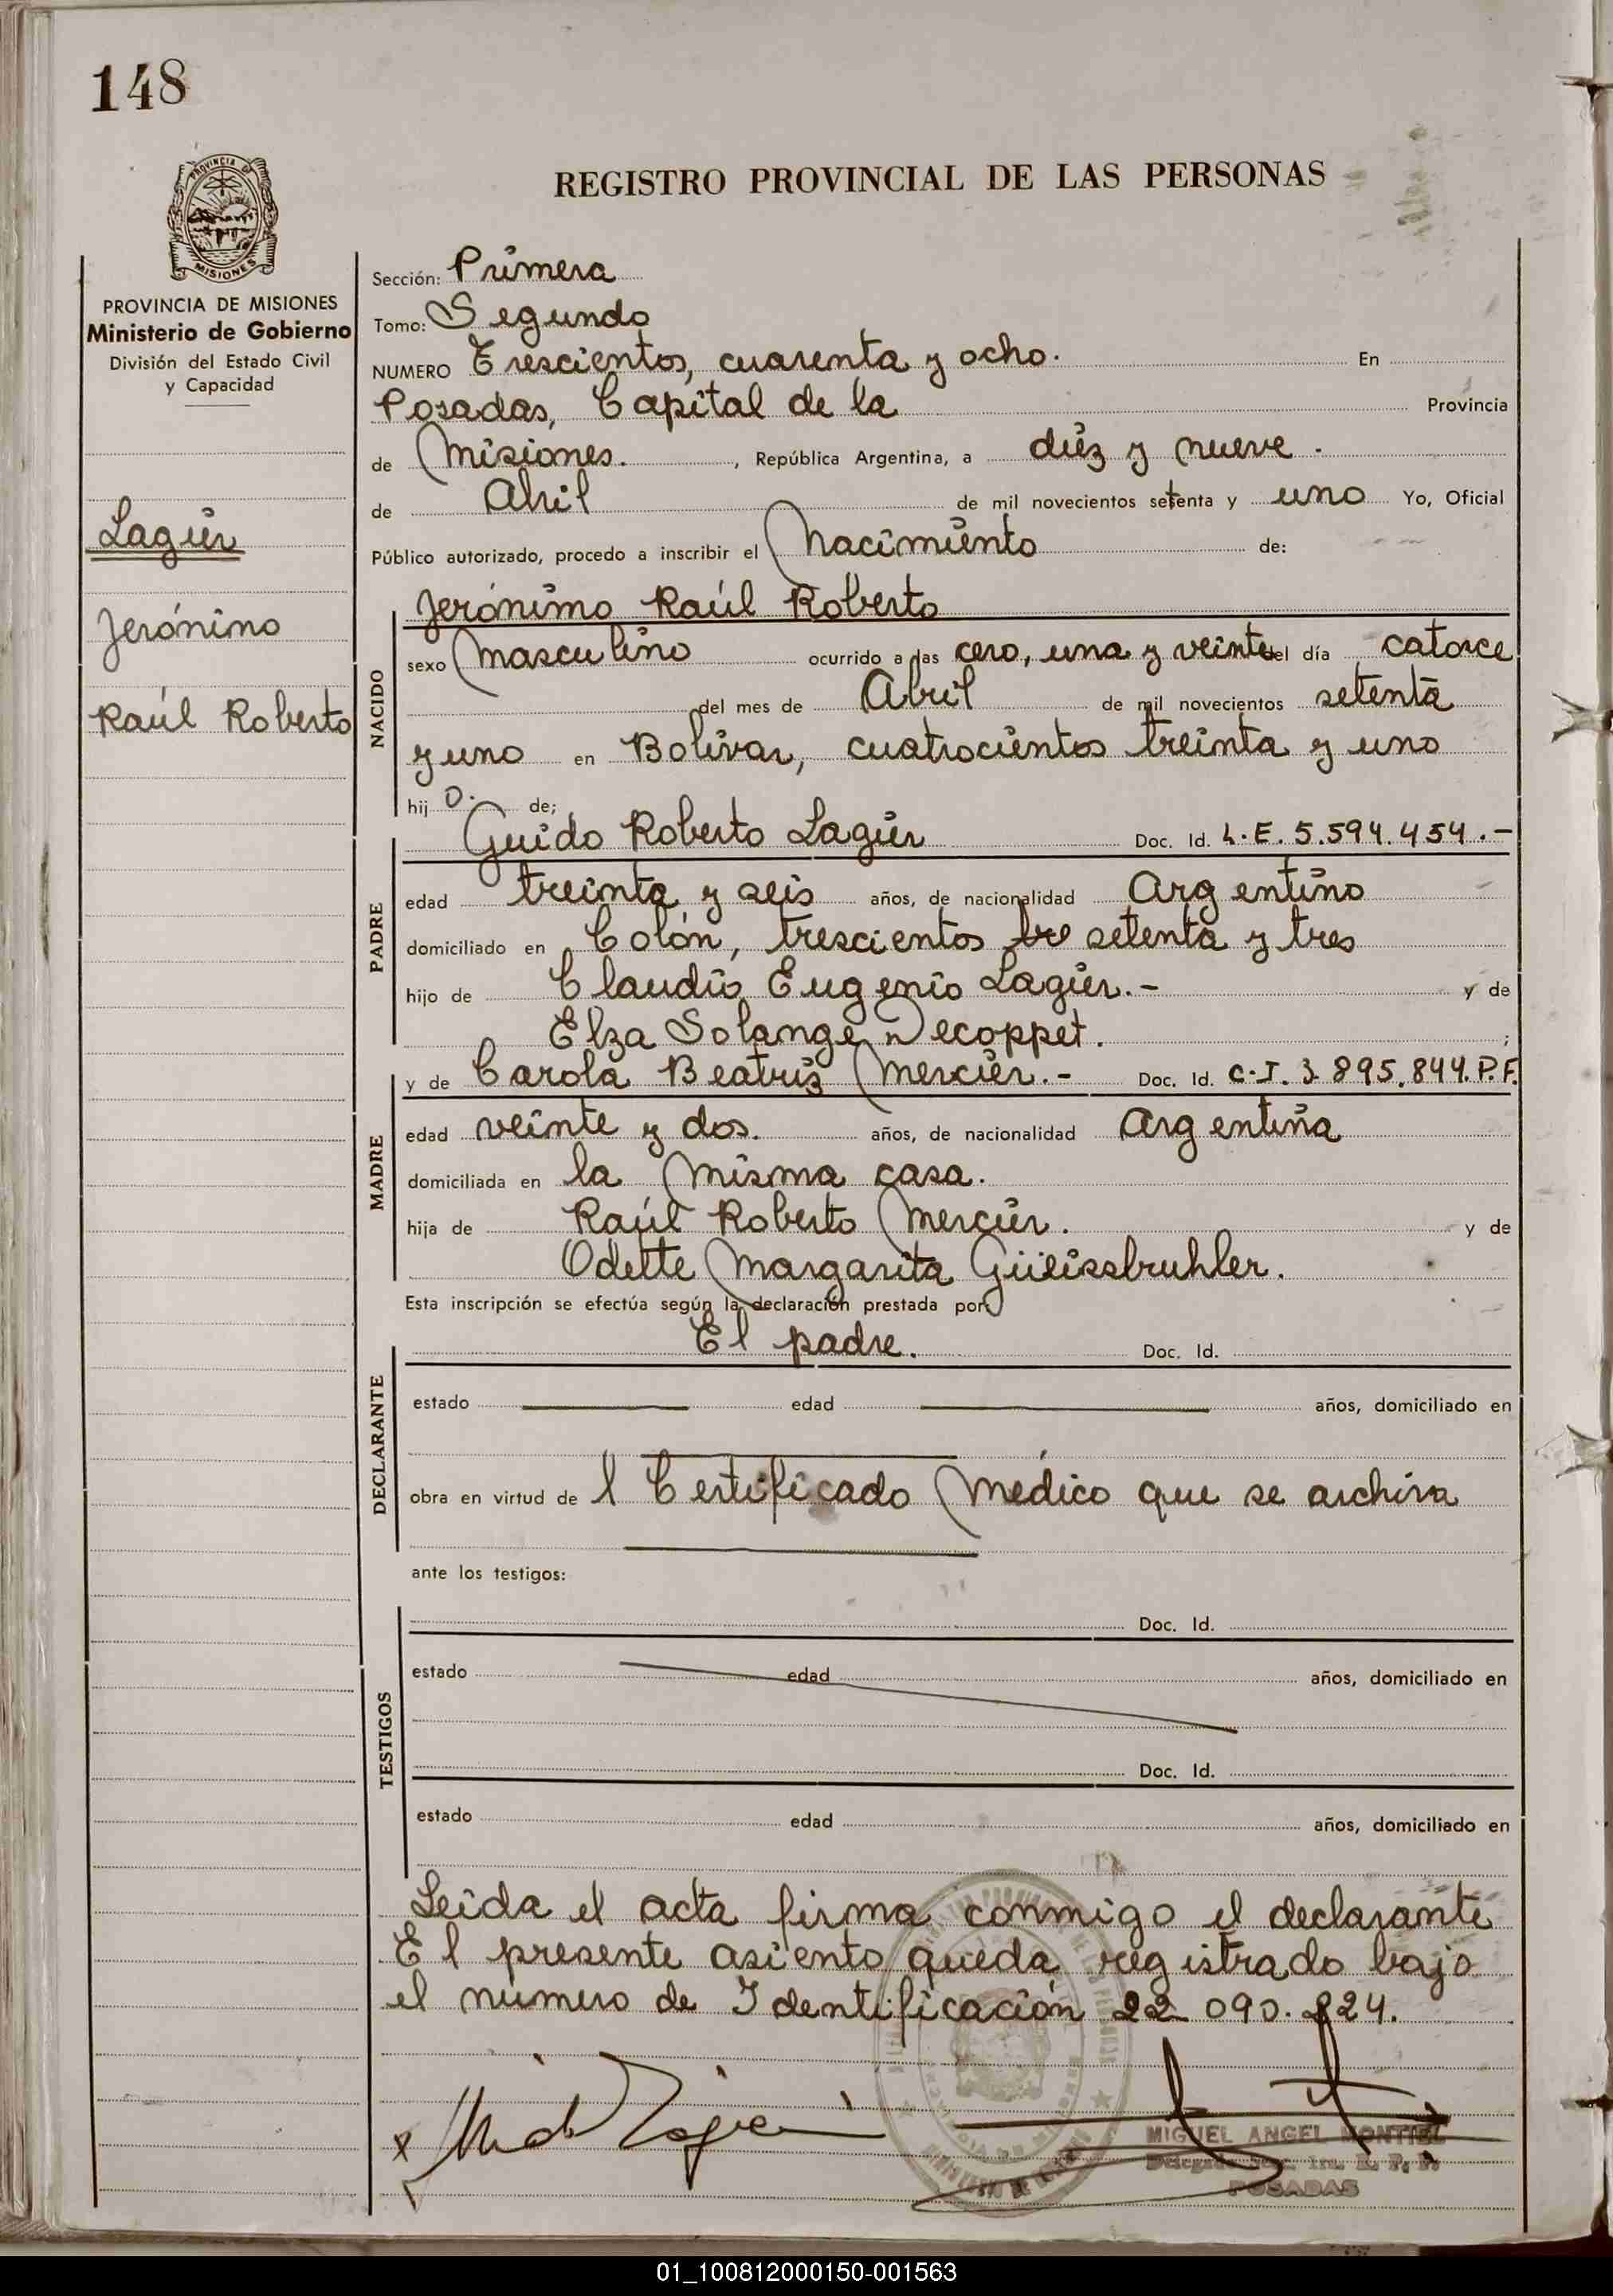 148
PROVINCIA DE
MISIONES
REGISTRO PROVINCIAL DE LAS PERSONAS
PROVINCIA DE MISIONES
Ministerio de Gobierno
División del Estado Civil
y Capacidad
Lagier
Jerónimo
Raúl Roberto
Sección: Primera
Tomo: Segundo
NUMERO Trescientos, cuarenta y ocho. En
Posadas, Capital de la Provincia
de Misiones. , República Argentina, a diez y nueve.
de Abril de mil novecientos setenta y uno Yo, Oficial
Público autorizado, procedo a inscribir el Nacimiento de:
NACIDO
Jerónimo Raúl Roberto
sexo Masculino ocurrido a las cero, una y veinte del día catorce
del mes de Abril de mil novecientos setenta
y uno en Bolívar, cuatrocientos treinta y uno
hijo. de;
PADRE
Guido Roberto Lagier Doc. Id. L.E. 5.594.454.-
edad treinta y seis años, de nacionalidad Argentino
domiciliado en Colón, trescientos tre setenta y tres
hijo de Claudio Eugenio Lagier.- y de
Elza Solange Decoppet. ;
MADRE
y de Carola Beatriz Mercier.- Doc. Id. C.I. 3.895.844. P.F.
edad veinte y dos. años, de nacionalidad Argentina
domiciliada en la misma casa.
hija de Raúl Roberto Mercier. y de
Odette Margarita Güeissbruhler.
Esta inscripción se efectúa según la declaración prestada por:
DECLARANTE
El padre. Doc. Id.
estado edad años, domiciliado en
obra en virtud de l Certificado Médico que se archiva
ante los testigos:
TESTIGOS
Doc. Id.
estado edad años, domiciliado en
Doc. Id.
estado edad años, domiciliado en
Leida el acta firma conmigo el declarante
El presente asiento queda registrado bajo
el numero de Identificación 22.090.824.
MIGUEL ANGEL MONTIEL
POSADAS
01_100812000150-001563